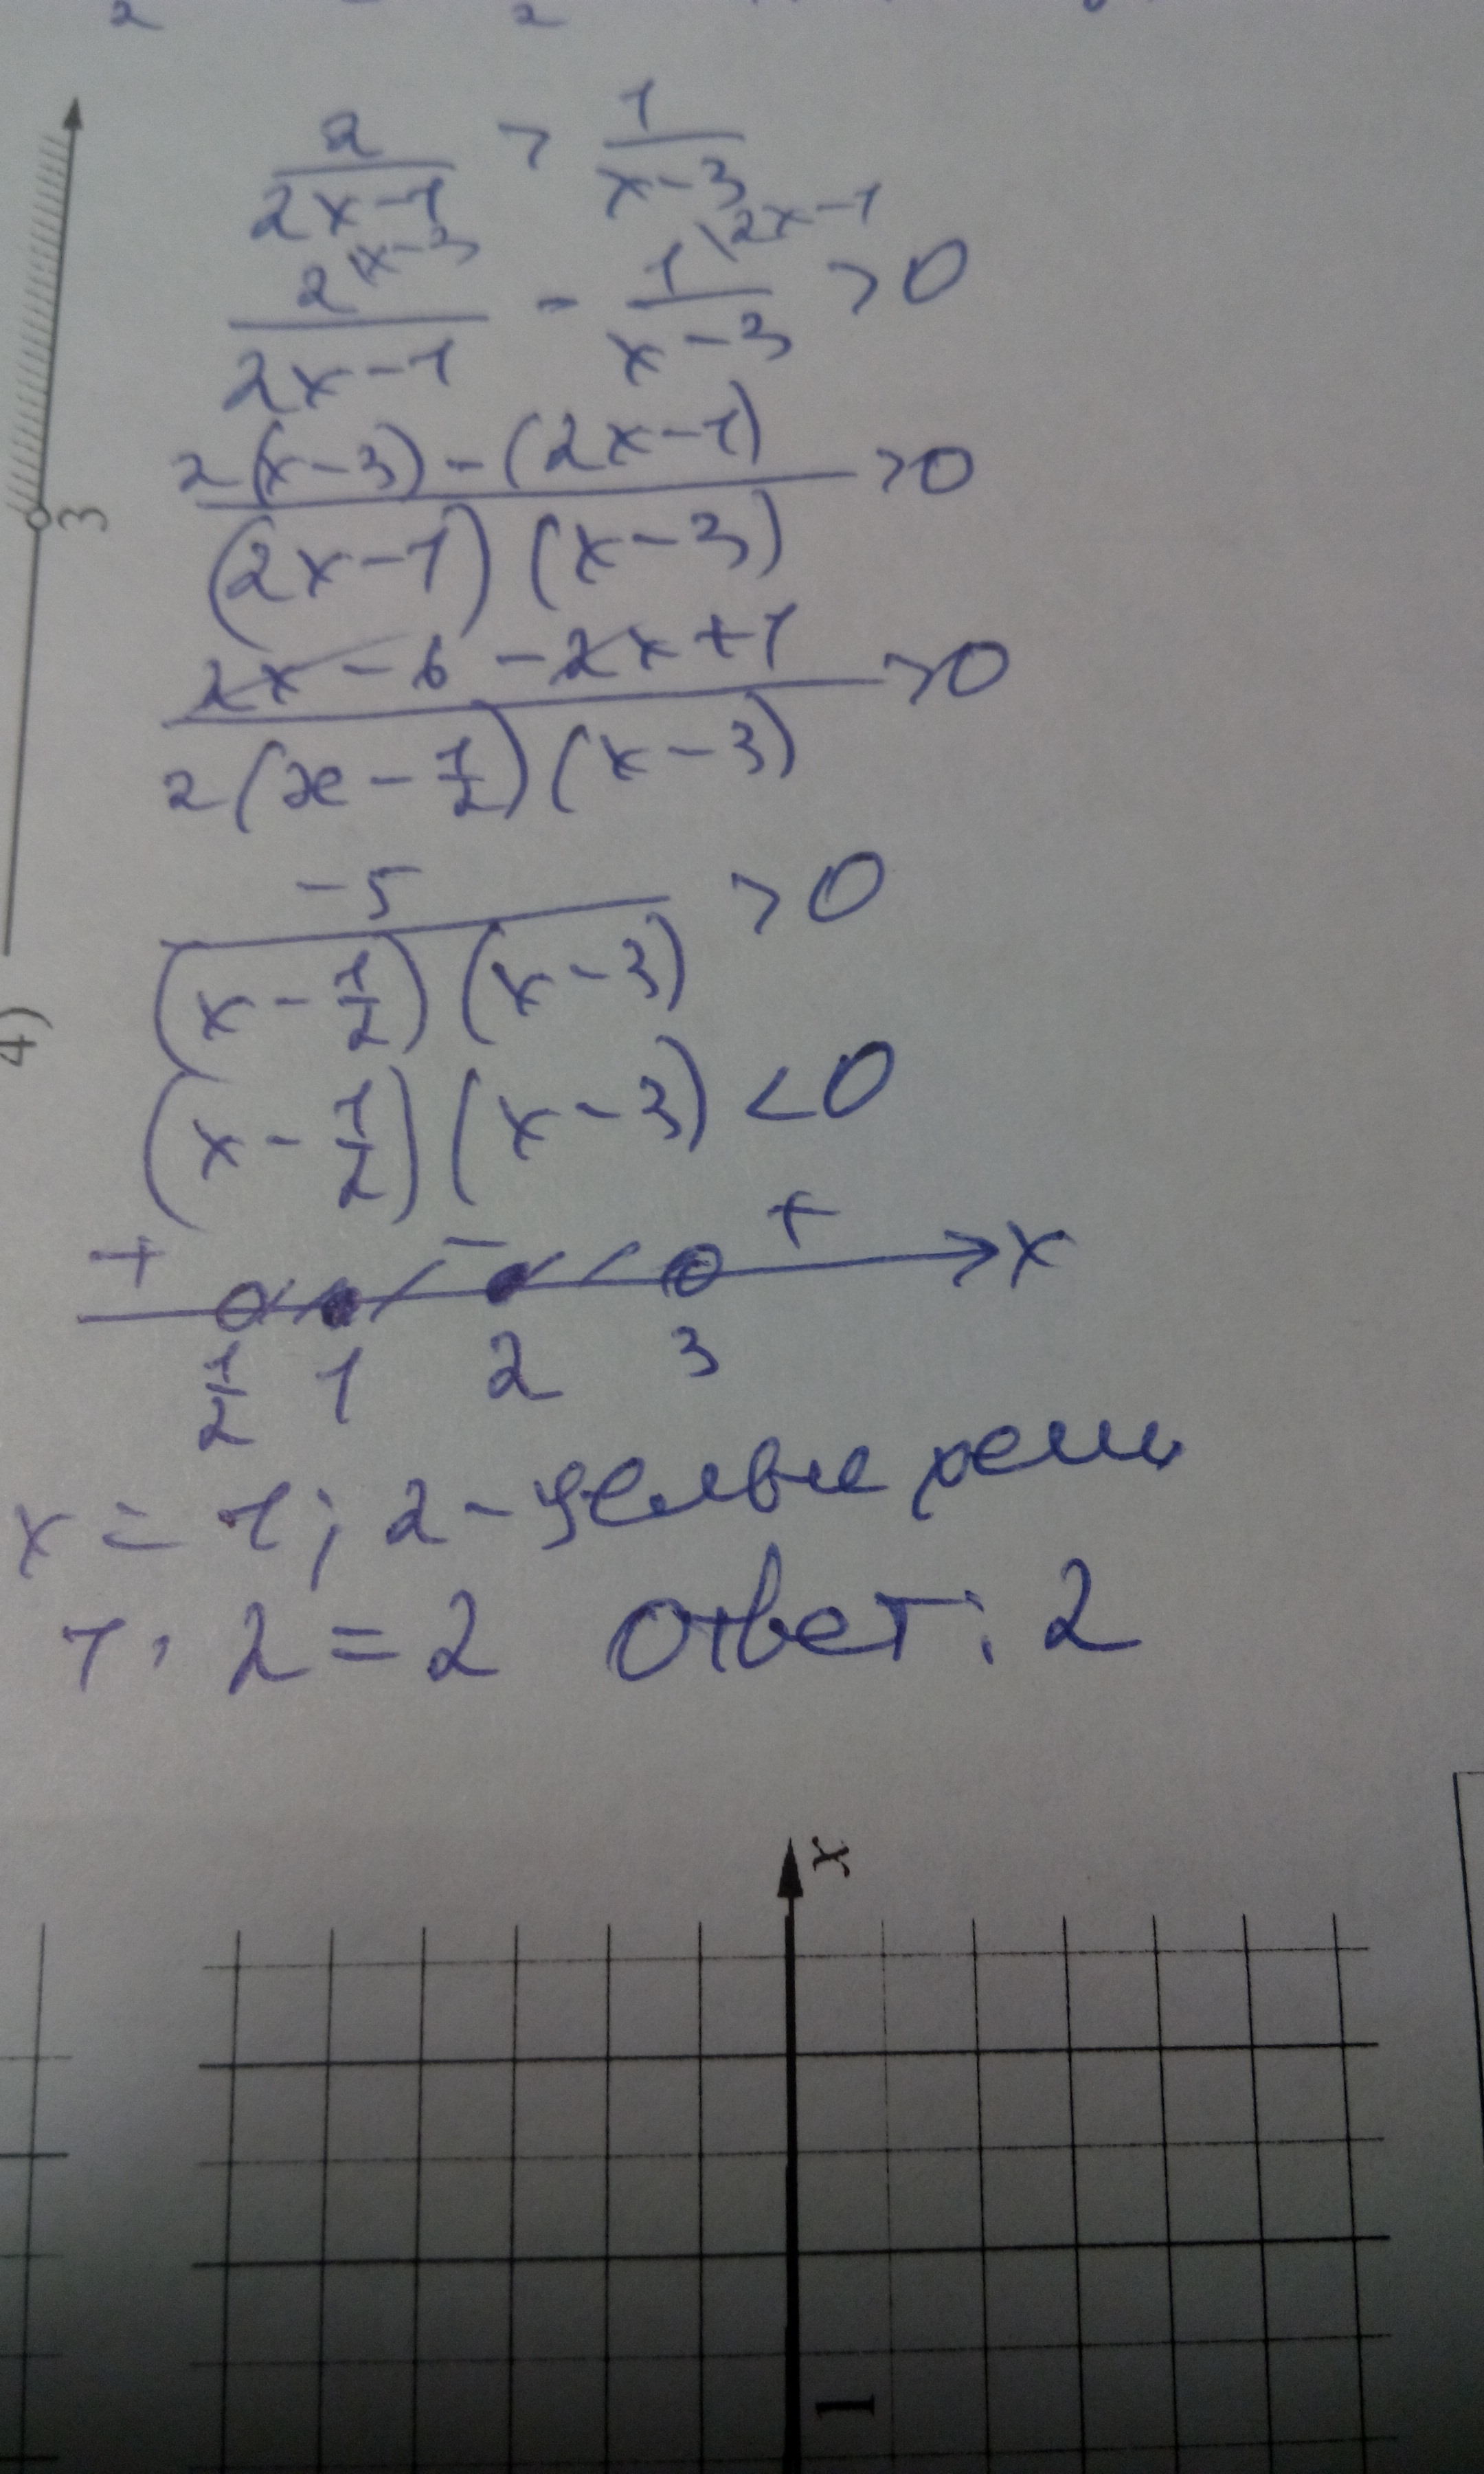 2/(2x-1) > 1/(x-3)
2\x-3/(2x-1) - 1\2x-1/(x-3) > 0
(2(x-3)-(2x-1))/((2x-1)(x-3)) > 0
(2x-6-2x+1)/(2(x-1/2)(x-3)) > 0
-5/((x-1/2)(x-3)) > 0
(x-1/2)(x-3) < 0
+ - + x
1/2 1 2 3
x = 1; 2 - целые реш
1 · 2 = 2 Ответ: 2
3
4)
x
1